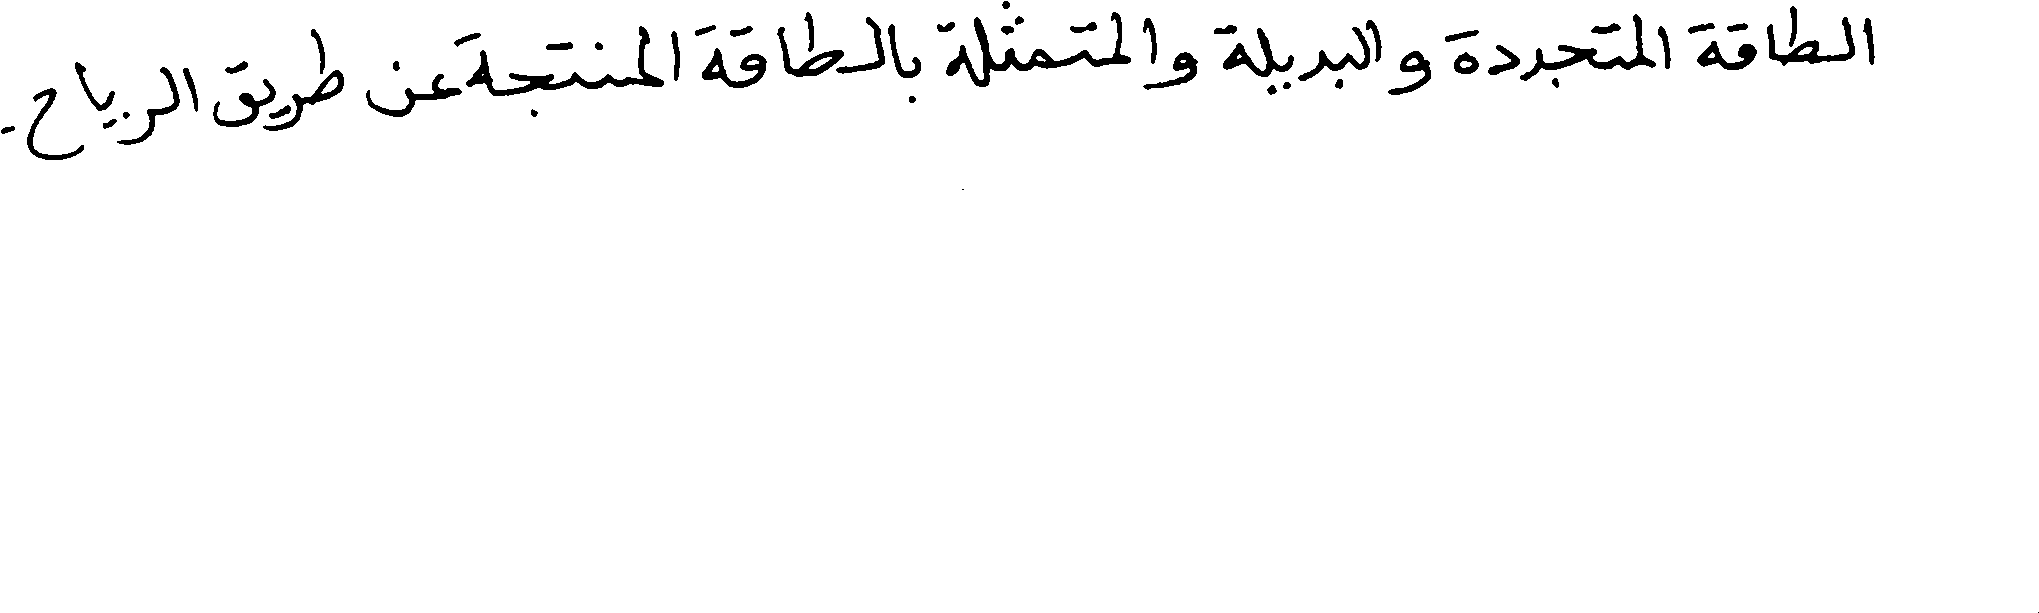 الطاقة المتجددة والبديلة والمتمثلة بالطاقة المنتجة عن طريق الرياح.